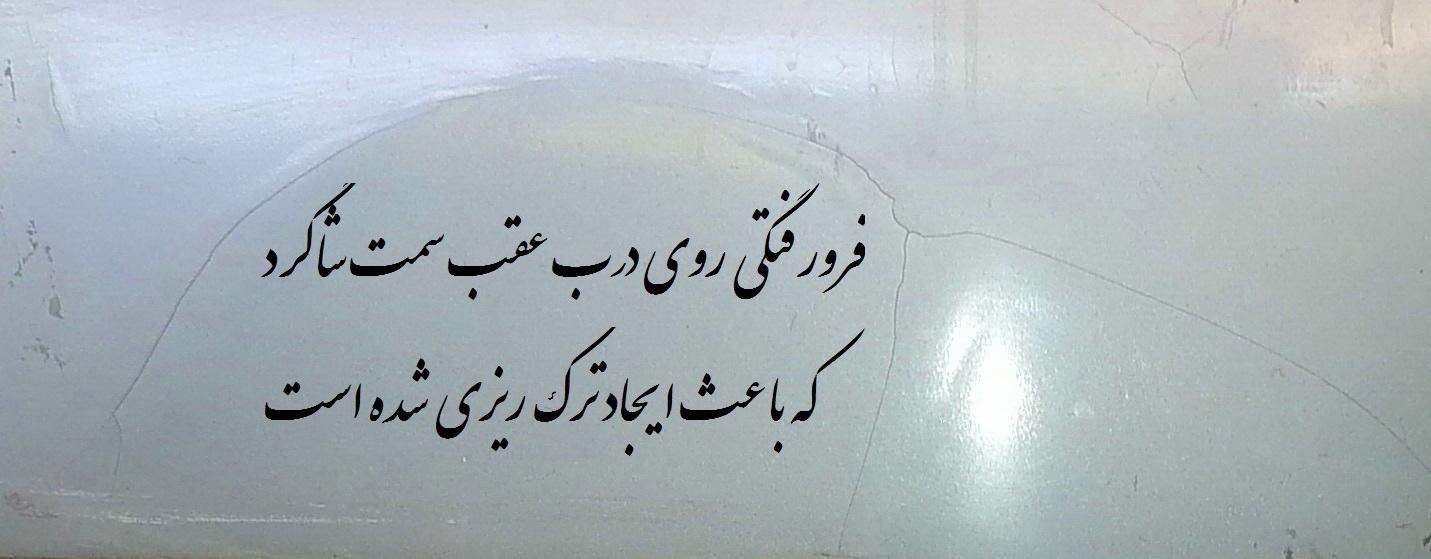 فرورفتگی روی درب عقب سمت شاگرد
که باعث ایجاد ترک ریزی شده است